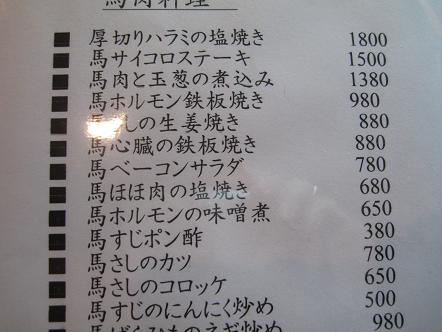 馬肉料理
■ 厚切りハラミの塩焼き 1800
■ 馬サイコロステーキ 1500
■ 馬肉と玉葱の煮込み 1380
■ 馬ホルモン鉄板焼き 980
■ しの生姜焼き 880
■ 馬心臓の鉄板焼き 880
■ 馬ベーコンサラダ 780
■ 馬ほほ肉の塩焼き 680
■ 馬ホルモンの味噌煮 650
■ 馬すじポン酢 380
■ 馬さしのカツ 780
■ 馬さしのコロッケ 650
■ 馬すじのにんにく炒め 500
■ 980